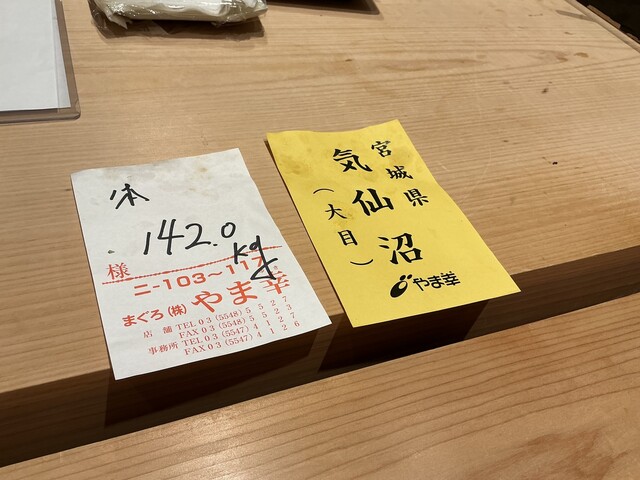 142.0
kg
様
ニ-103～117
まぐろ(株)やま幸
店舗 TEL 03(5548)5527
FAX 03(5548)5523
事務所 TEL 03(5547)4127
FAX 03(5547)4126
宮城県
気仙沼
(大目)
やま幸